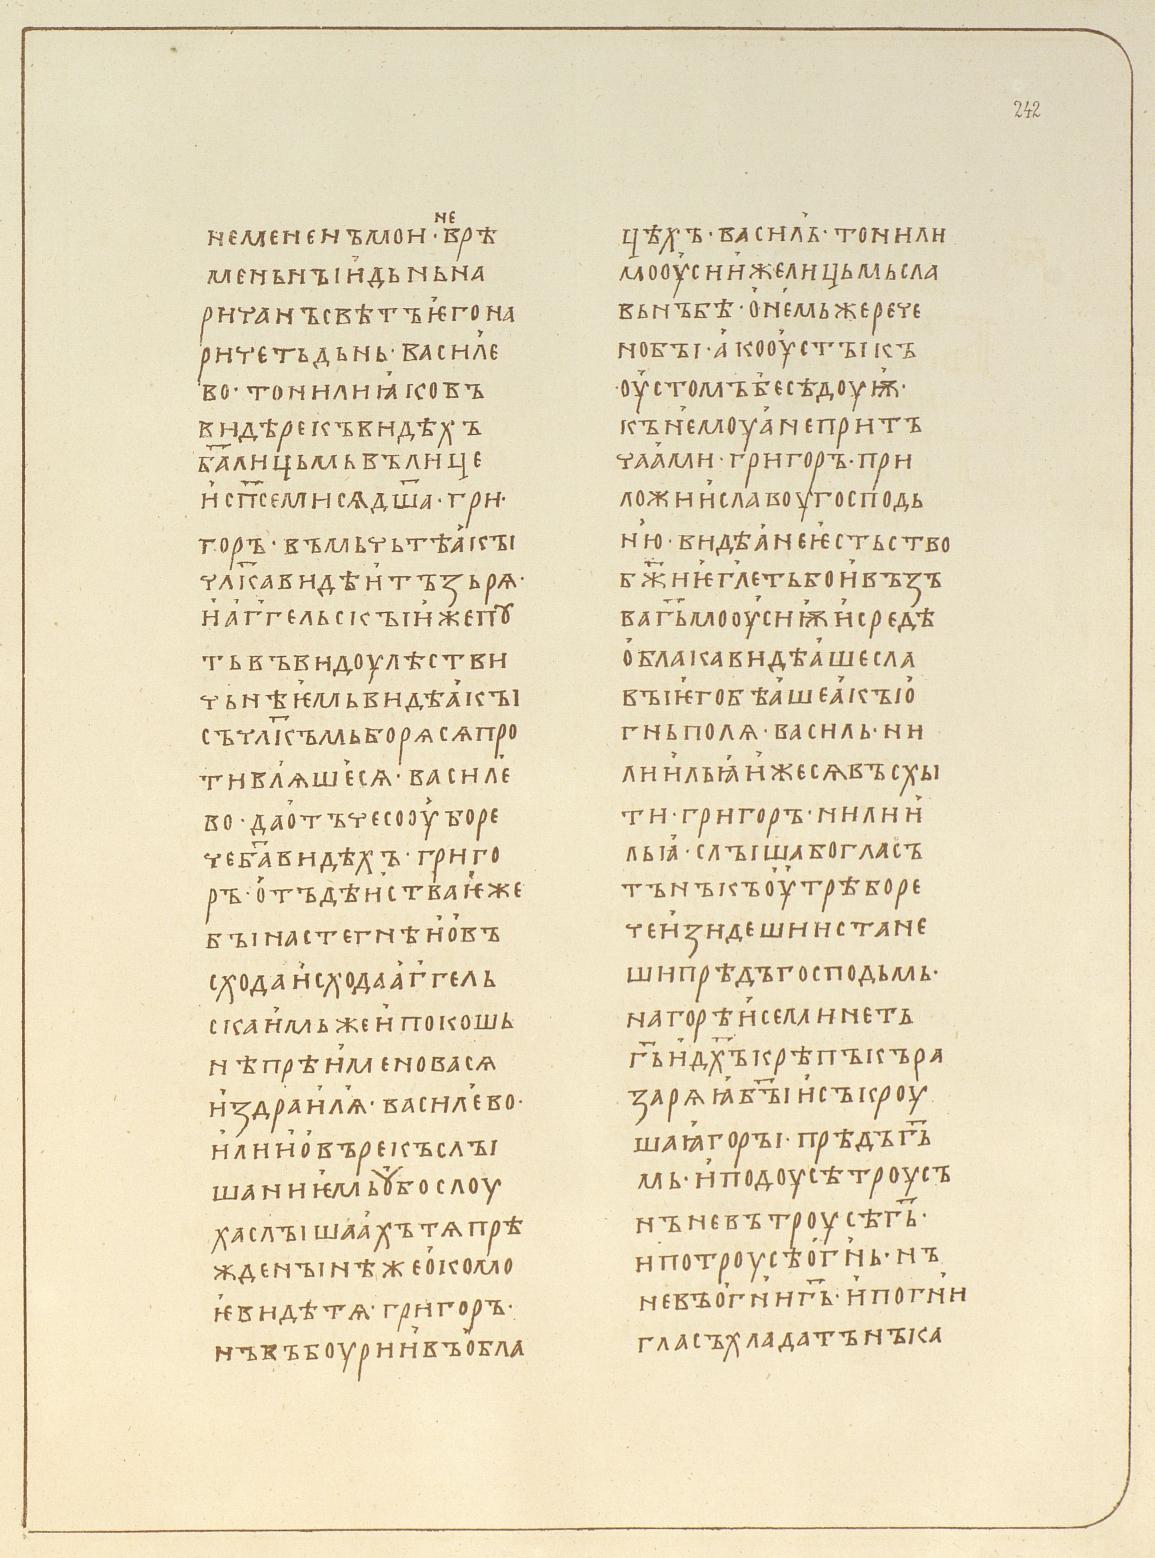 242
не
немененъмои·врѣ
меньнъıи҆дьньна
ричанъсвѣтъѥ҆гона
ричетьдьнь·василе҆
во·тонилиꙗ҆ковъ
видѣрекъвидѣхъ
б҃алицьмьвълице
и҆сп҃семисѧдш҃а·гри·
горъ·въмьчьтѣа҆кꙑ
чл҃кавидѣи҆тъзьрѧ·
и҆а҆г҆гельскъıижепꙋ
тьвъвидоулѣстви
чьнѣѥ҆мьвидѣа҆къı
съчл҃къмьборѧсѧпро
тивлꙗ҆шесѧ·василе҆
во·дао҆тъчесооу҆боре
чеб҃авидѣхъ·григо
ръ·о҆тъдѣи҆стваѥ҆же
бъıнастегнѣи҆о҆въ
сходаи҆сходаа҆г҆гель
скаи҆мьжеи҆покошь
нѣпрѣи҆меновасѧ
и҆здраи҆лꙗ҆·василе҆во·
и҆лии҆о҆върекъслъı
шаниѥ҆мьꙋ҆бослоу
хаслъıшаа҆хътѧпрѣ
жденъıнѣжео҆комо
ѥ҆видѣтѧ·григоръ·
нъвъбоурии҆въо҆бла
цѣхъ·василь҆·тонили
мооу҆сии҆желицьмьсла
вьнъбѣ·о҆не҆мьжерече
нобъı·а҆кооу҆стъıкъ
оу҆стомъбесѣдоуѭ҆·
къне҆моуа҆непритъ
чаа҆ми·григоръ·при
ложии҆славоугосподь
ню҆·видѣа҆неѥ҆стьство
бж҃иѥ҆гл҃етьбои҆възъ
ваг҃ьмооу҆сиѭ҆и҆средѣ
о҆блакавидѣа҆шесла
въıѥ҆гобѣа҆шеа҆къıо҆
гньполѧ·василь·ни
лии҆льꙗ҆и҆жесѧвъсхы
ти·григоръ·нилии҆
льꙗ҆·слъıшабогласъ
тънъкъоу҆трѣборе
чеи҆зидешиистане
шипрѣдъгосподьмь·
нагорѣи҆семинеть
г҃ьи҆дх҃ъкрѣпъкъра
зарѧꙗ҆б҃ъıи҆съкроу
шаꙗ҆горъı·прѣдъг҃ь
мь·и҆подоусѣтроусъ
нъневътроусѣг҃ь·
ипотроусѣо҆гн҆ь·нъ
невъо҆гн҆иг҃ь·и҆погн҆и
гласъхладатънъка